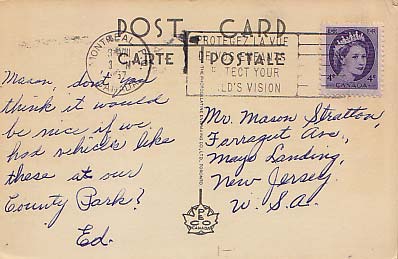 POST CARD
CARTE POSTALE
MONTREAL
CANADA
PROTEGEZ LA VUE
PROTECT YOUR
CHILD'S VISION
CANADA
4¢
4¢
Mason, don't you
think it would
be nice if we
had vehicles like
these at our
County Park?
Ed.
Mr. Mason Stratton,
Farragut Ave.,
Mays Landing,
New Jersey.
U.S.A.
PECO
CANADA